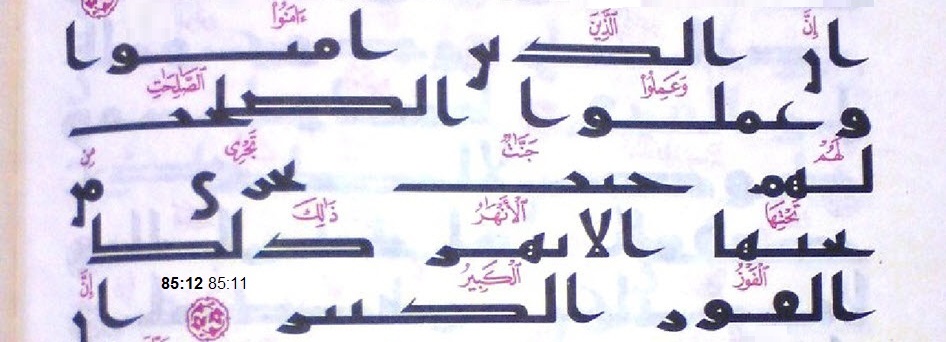 إِنَّ الَّذِينَ ءَامَنُوا۟
ان الذين امنوا
وَعَمِلُوا۟ الصَّٰلِحَٰتِ
وعملوا الصلحت
لَهُمْ جَنَّٰتٌ تَجْرِى مِن
لهم جنت تجرى من
تَحْتِهَا الْأَنْهَٰرُ ذَٰلِكَ
تحتها الانهر ذلك
الْفَوْزُ الْكَبِيرُ 85:11 85:12 إِنَّ
الفوز الكبير ان